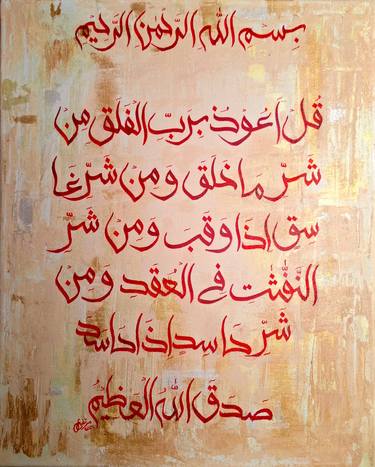 بِسْمِ اللهِ الرَّحْمٰنِ الرَّحِيْمِ
قُلْ اَعُوْذُ بِرَبِّ الْفَلَقِ مِنْ
شَرِّ مَا خَلَقَ وَمِنْ شَرِّ غَا
سِقٍ اِذَا وَقَبَ وَمِنْ شَرِّ
النَّفّٰثٰتِ فِے الْعُقَدِ وَمِنْ
شَرِّ حَاسِدٍ اِذَا حَاسَدَ
صَدَقَ اللهُ الْعَظِيْمُ